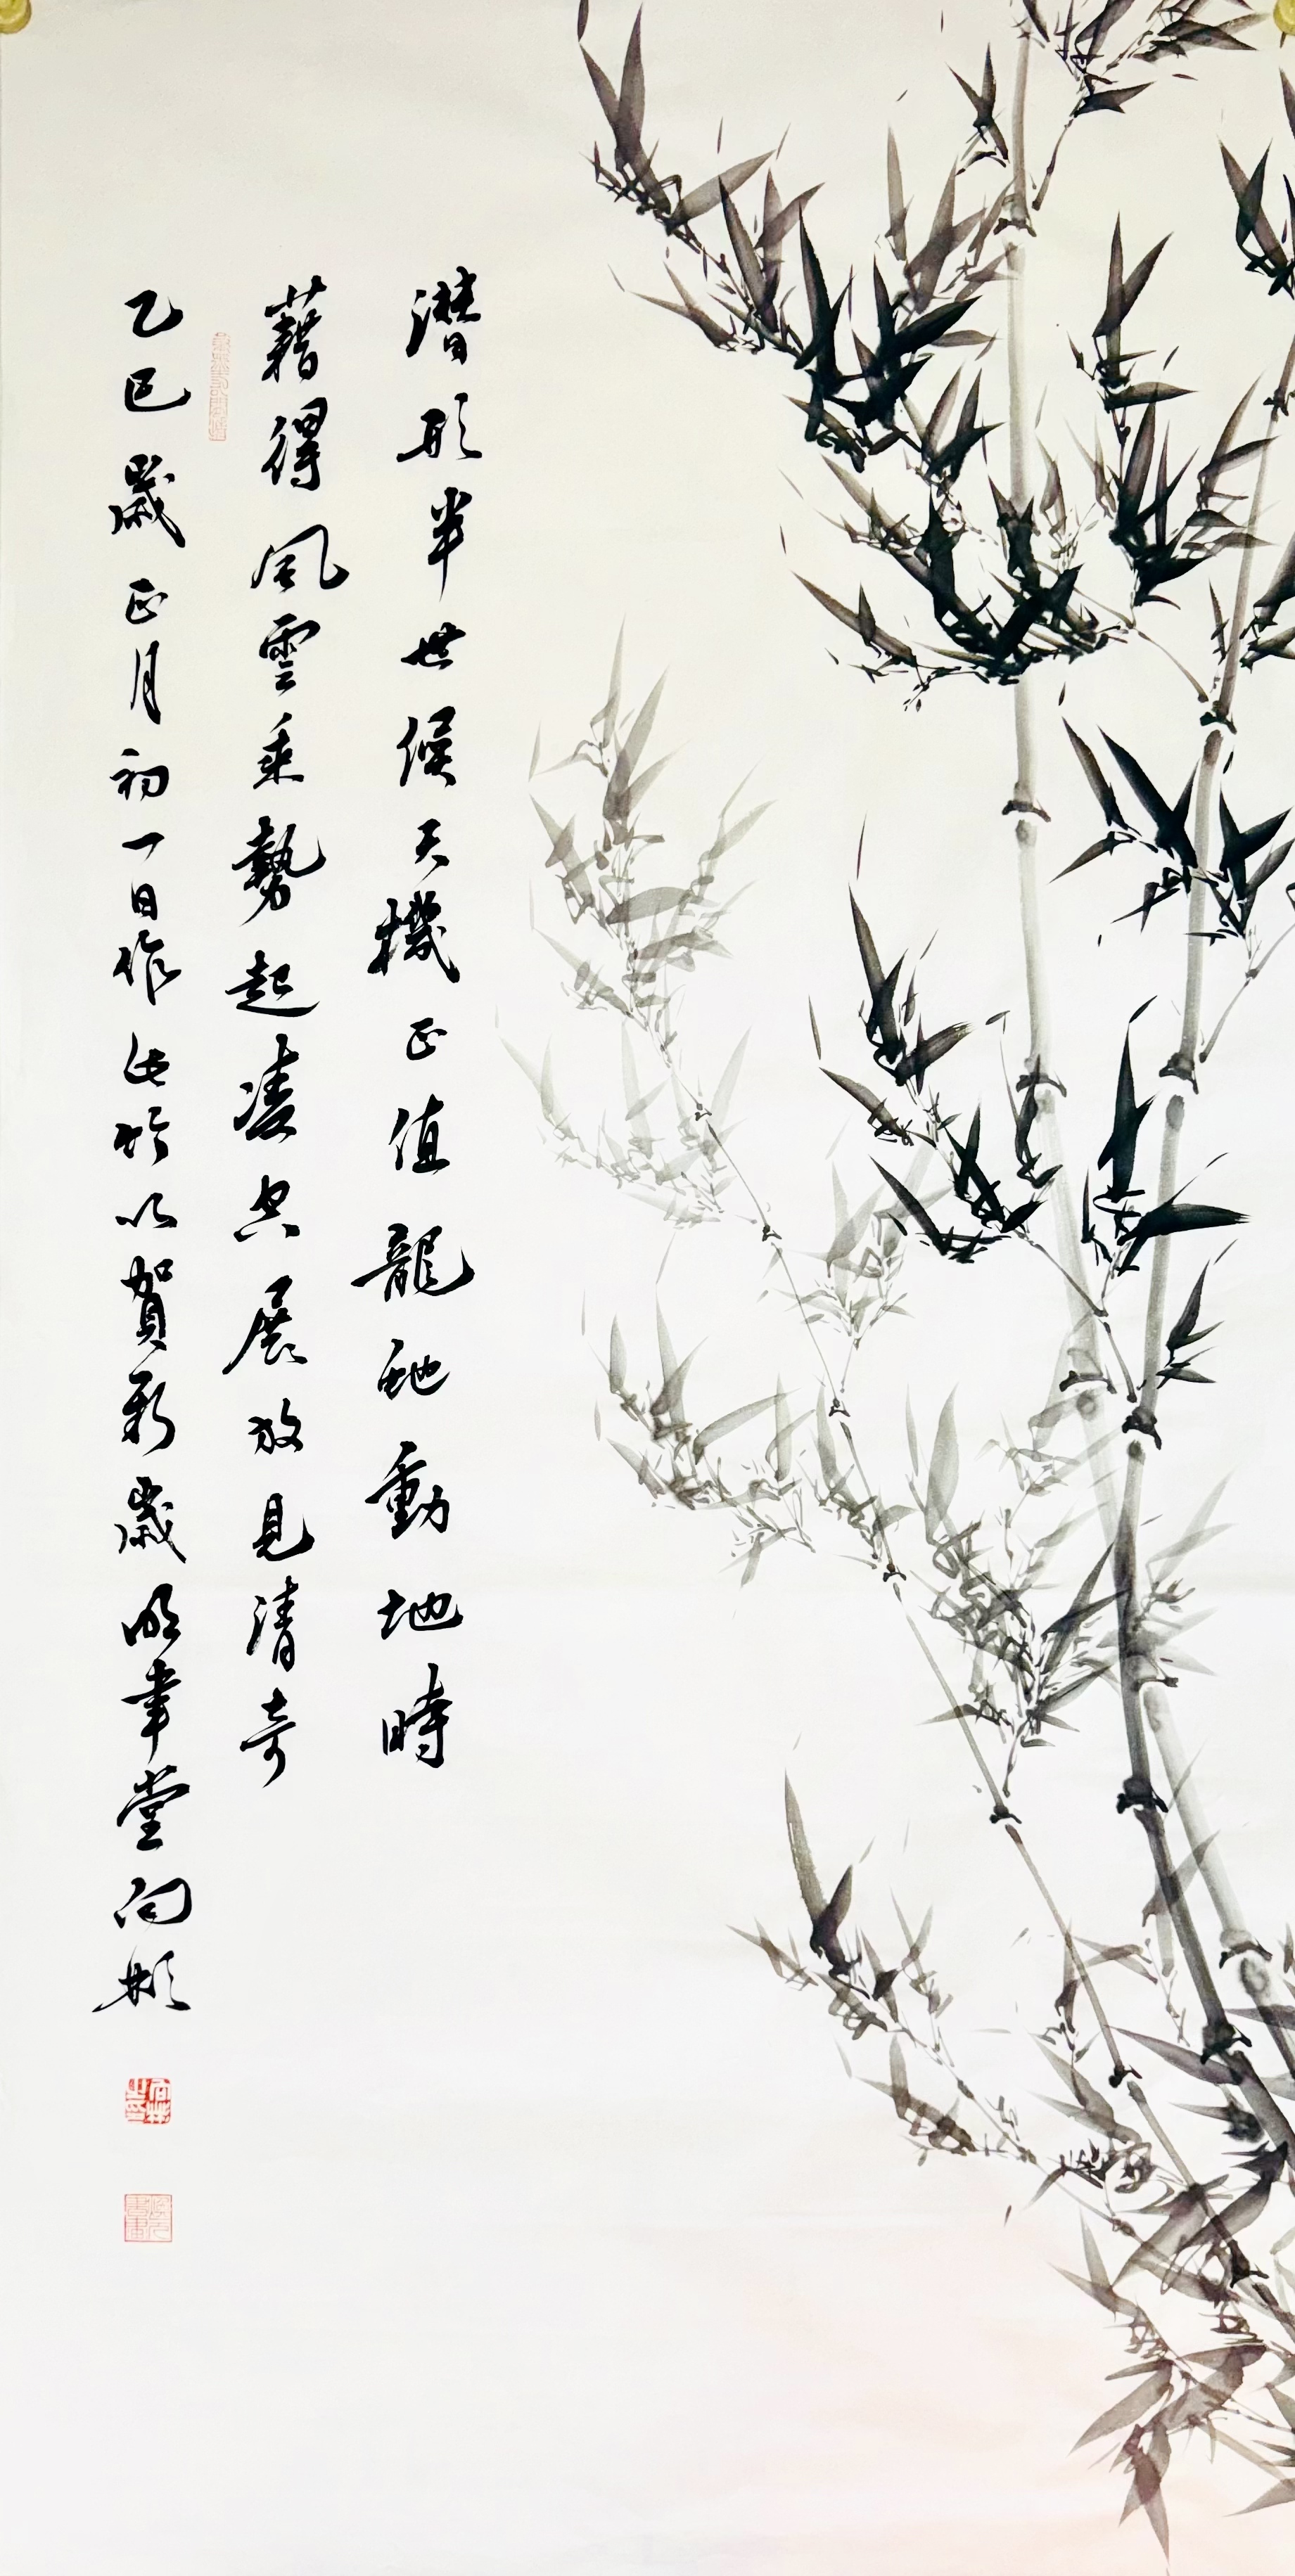 潛形半世候天機正值龍蛇動地時
藉得風雲乘勢起凌空展放見清奇
乙巳歲正月初一日作此竹以賀新歲